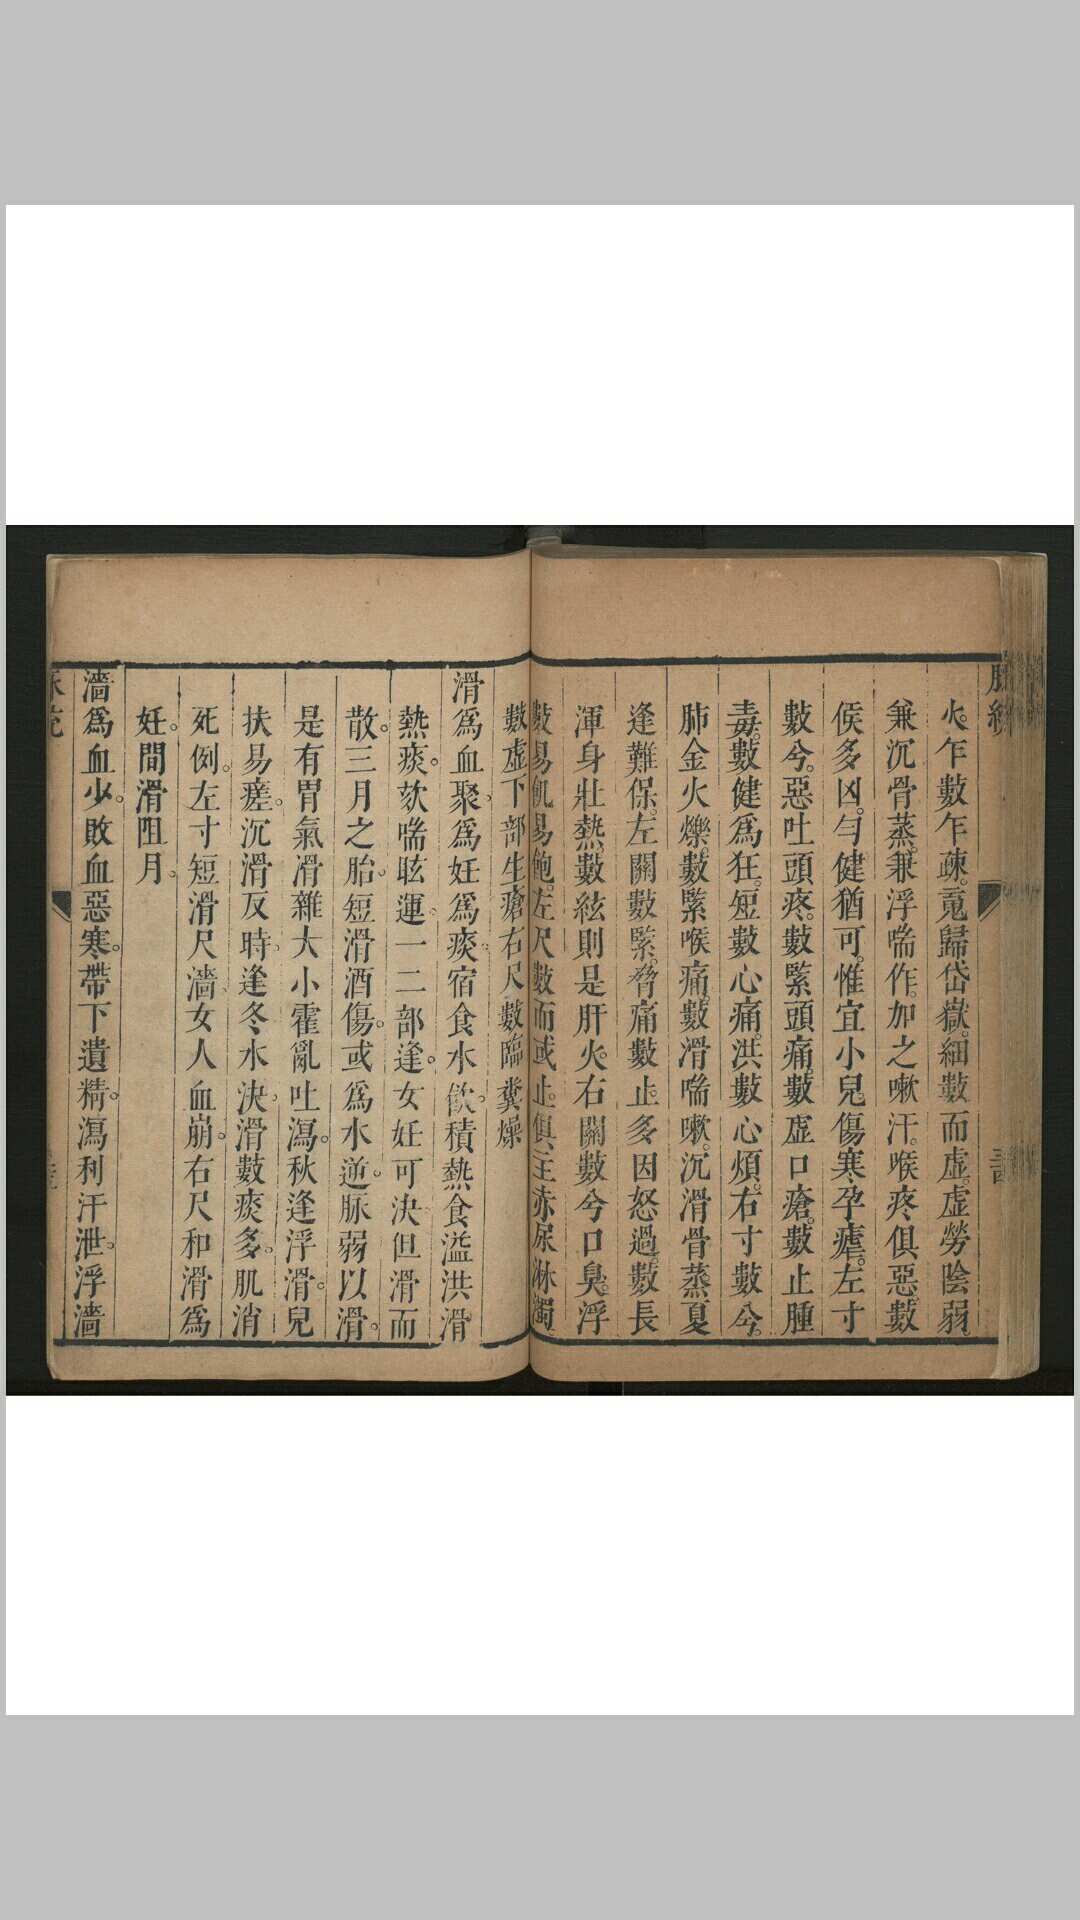 火。乍數乍疎。竟歸岱嶽。細數而虛。虛勞陰弱。
兼沉骨蒸。兼浮喘作。加之嗽汗。喉疼俱惡。數
侯多凶。勻健猶可。惟宜小兒。傷寒孕瘧。左寸
數兮。惡吐頭疼。數緊頭痛。數虛口瘡。數止腫
毒。數健為狂。短數心痛。洪數心煩。右寸數兮。
肺金火爍。數緊喉痛。數滑喘嗽。沉滑骨蒸。夏
逢難保。左關數緊。脅痛數止。多因怒過。數長
渾身壯熱。數絃則是肝火。右關數兮口臭。浮
數易飢易飽。左尺數而或止。俱主赤尿淋濁。
數虛下部生瘡。右尺數臨糞燥
滑為血聚。為妊為痰。宿食水飲。積熱食溢。洪滑
熱痰。欬喘眩運。一二部逢。女妊可決。但滑而
散。三月之胎。短滑酒傷。或為水逆。脉弱以滑。
是有胃氣。滑雜大小。霍亂吐瀉。秋逢浮滑。兒
扶易瘥。沉滑反時。逢冬水決。滑數痰多。肌消
死例。左寸短滑。尺濇女人血崩。右尺和滑為
妊。間滑阻月。
濇為血少。敗血惡寒。帶下遺精。瀉利汗泄。浮濇